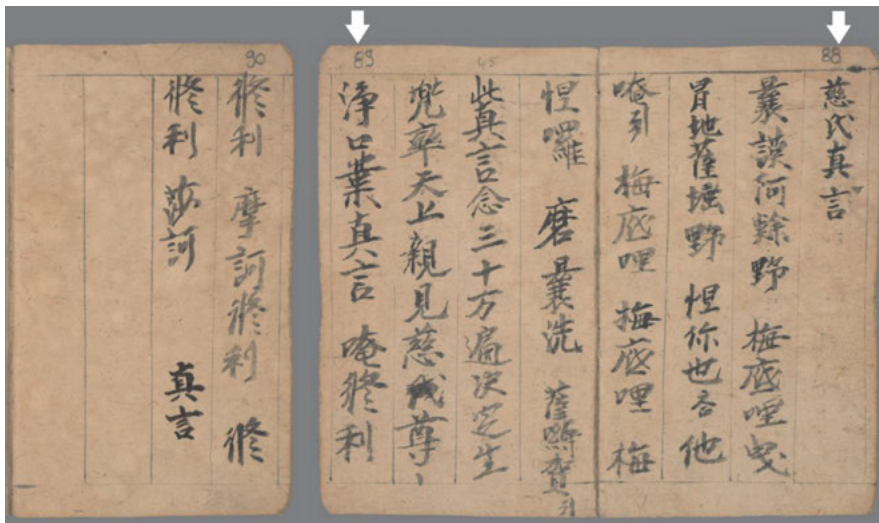 88
慈氏真言
曩謨阿餘野 梅底哩曳
冐地薩埵野 怛你也吞他
唵引 梅底哩 梅底哩 梅
怛囉 磨曩洗 薩嚩賀引
45
此真言念三十万遍决定生
兠率天上親見慈氏尊
89
淨口業真言 唵修利
90
修利 摩訶修利 修
修利 莎訶 真言